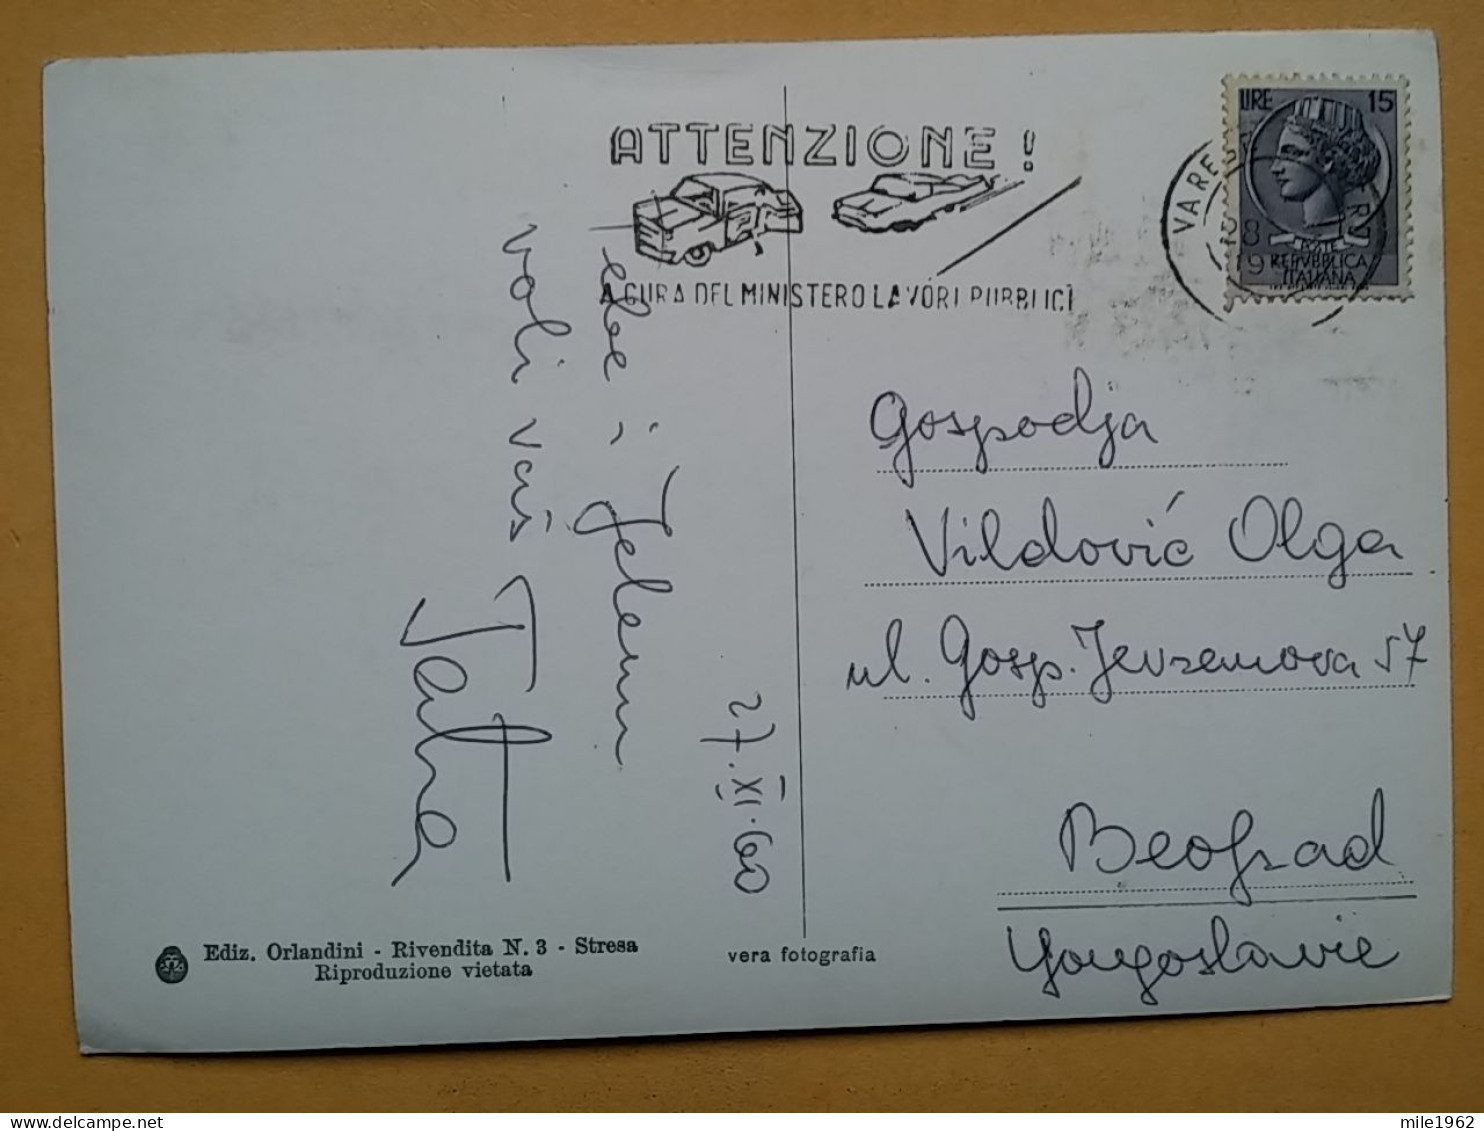 ATTENZIONE !
A CURA DEL MINISTERO LAVORI PUBBLICI
LIRE 15
VARESE
REPVBBLICA
ITALIANA
i Jelenu
voli vaš
Tata
27.XI.60
Gospodja
Vildović Olga
ul. Gosp. Jevremova 57
Beograd
Yougoslavie
Ediz. Orlandini - Rivendita N. 3 - Stresa
Riproduzione vietata
vera fotografia
mile1962